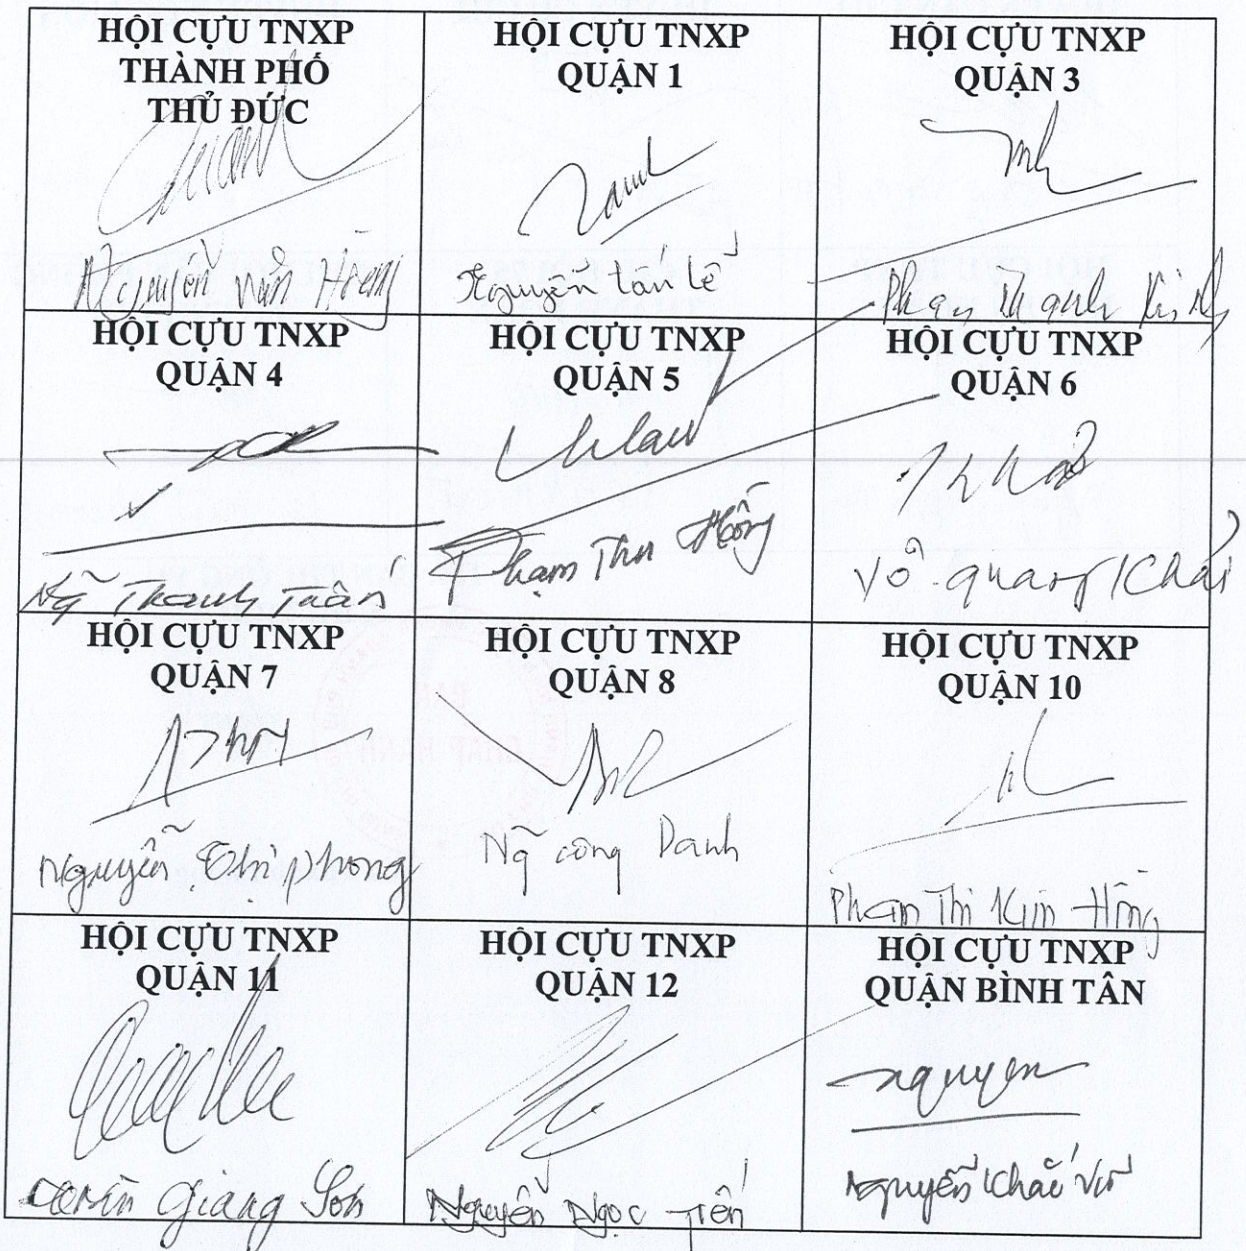 HỘI CỰU TNXP
THÀNH PHỐ
THỦ ĐỨC
Nguyễn Văn Hoàng
HỘI CỰU TNXP
QUẬN 1
Nguyễn tấn lễ
HỘI CỰU TNXP
QUẬN 3
Phạm Thanh
HỘI CỰU TNXP
QUẬN 4
Thanh Tuấn
HỘI CỰU TNXP
QUẬN 5
Phạm Thu Hồng
HỘI CỰU TNXP
QUẬN 6
Võ quang Khải
HỘI CỰU TNXP
QUẬN 7
Nguyễn Thị phong
HỘI CỰU TNXP
QUẬN 8
Ng̃ công Danh
HỘI CỰU TNXP
QUẬN 10
Phạm Thị Kim Hồng
HỘI CỰU TNXP
QUẬN 11
Giang Sơn
HỘI CỰU TNXP
QUẬN 12
Nguyễn Ngọc Tiến
HỘI CỰU TNXP
QUẬN BÌNH TÂN
nguyen
Nguyễn Khắc Vũ